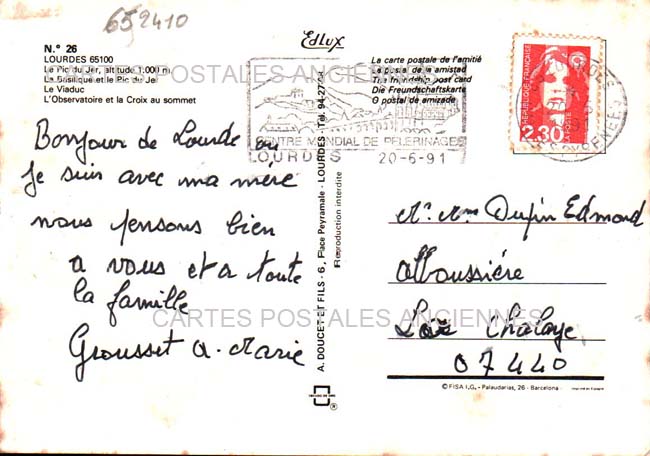 652410
Edlux
N.° 26
LOURDES 65100
Le Pic du Jer, altitude 1.000 m
La Basilique et le Pic du Jer
Le Viaduc
L'Observatoire et la Croix au sommet
La carte postale de l'amitié
La postal de la amistad
The friendship post card
Die Freundschaftskarte
O postal de amizade
CARTES POSTALES ANCIENNES
CENTRE MONDIAL DE PELERINAGES
LOURDES 20-6-91
REPUBLIQUE FRANÇAISE
2,30
LA POSTE
Bonjour de Lourde ou
Je suis avec ma mère
nous pensons bien
a vous et a toute
la famille
Grousset A. Marie
A. DOUCET ET FILS - 6, Place Peyramale - LOURDES - Tél. 94-27
Reproduction interdite
Mr Mme Dupin Edmond
Alboussière
Las Chalaye
07440
CARTES POSTALES ANCIENNES
© FISA I.G. - Palaudarias, 26 - Barcelona